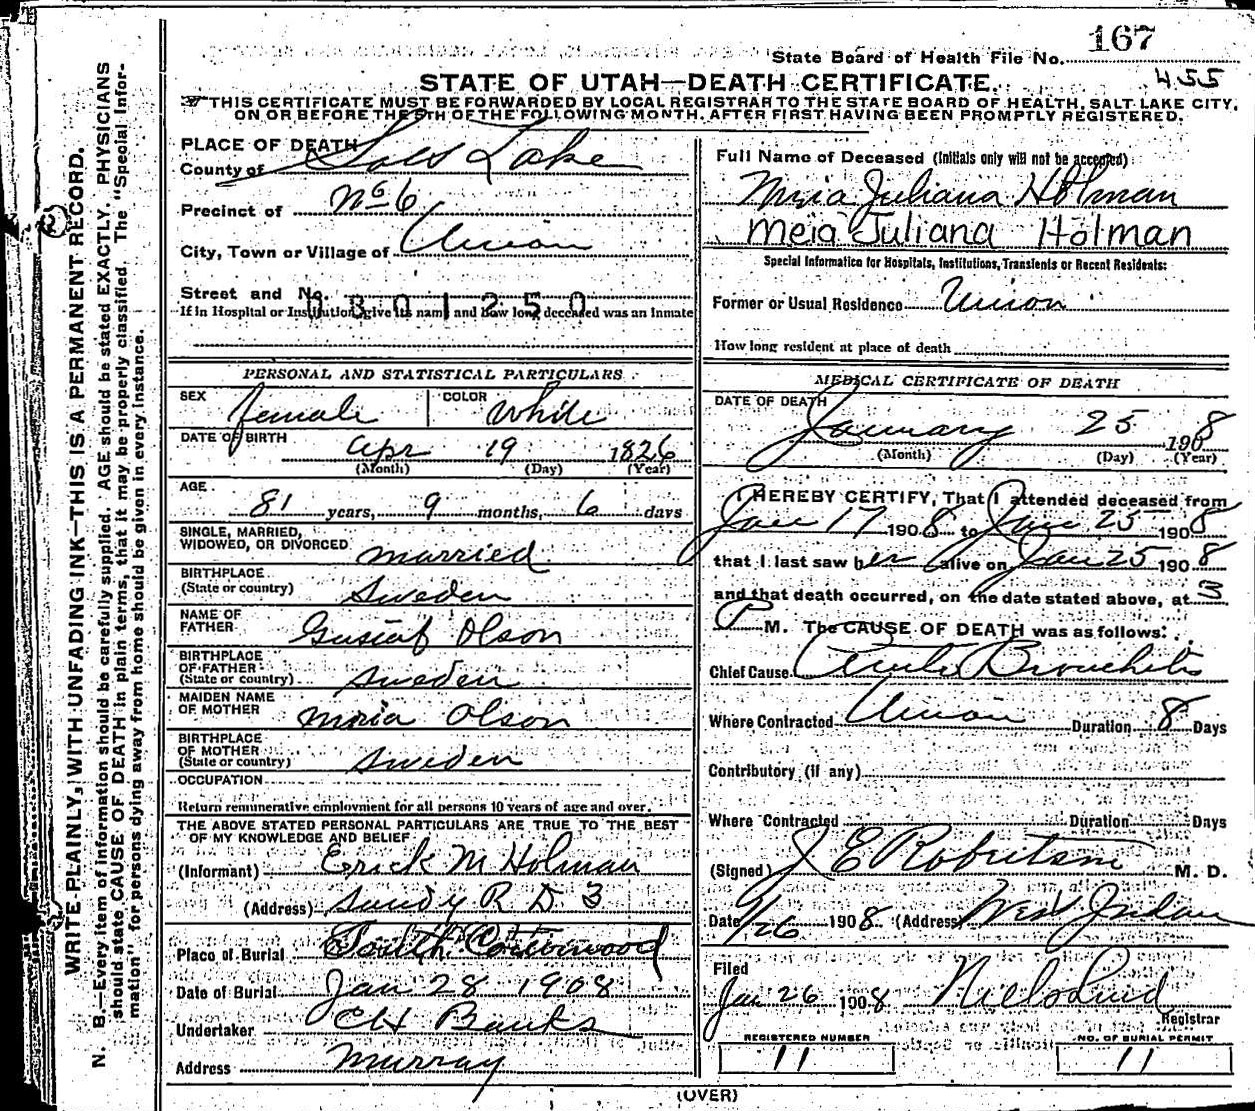 167
State Board of Health File No.
455
STATE OF UTAH—DEATH CERTIFICATE.
THIS CERTIFICATE MUST BE FORWARDED BY LOCAL REGISTRAR TO THE STATE BOARD OF HEALTH, SALT LAKE CITY,
ON OR BEFORE THE 5TH OF THE FOLLOWING MONTH, AFTER FIRST HAVING BEEN PROMPTLY REGISTERED.
WRITE PLAINLY, WITH UNFADING INK—THIS IS A PERMANENT RECORD.
N. B.—Every item of information should be carefully supplied. AGE should be stated EXACTLY. PHYSICIANS
should state CAUSE OF DEATH in plain terms, that it may be properly classified. The "Special Infor-
mation" for persons dying away from home should be given in every instance.
PLACE OF DEATH
County of Salt Lake
Precinct of No 6
City, Town or Village of Union
Street and No.
0801250
If in Hospital or Institution, give its name and how long deceased was an inmate
PERSONAL AND STATISTICAL PARTICULARS
SEX female COLOR White
DATE OF BIRTH Apr 19 1826
(Month) (Day) (Year)
AGE 81 years, 9 months, 6 days
SINGLE, MARRIED,
WIDOWED, OR DIVORCED married
BIRTHPLACE
(State or country) Sweden
NAME OF
FATHER Gustaf Olson
BIRTHPLACE
OF FATHER
(State or country) Sweden
MAIDEN NAME
OF MOTHER Maria Olson
BIRTHPLACE
OF MOTHER
(State or country) Sweden
OCCUPATION
Return remunerative employment for all persons 10 years of age and over.
THE ABOVE STATED PERSONAL PARTICULARS ARE TRUE TO THE BEST
OF MY KNOWLEDGE AND BELIEF
(Informant) Erick M Holman
(Address) Sandy R D 3
Place of Burial South Cottonwood
Date of Burial Jan 28 1908
Undertaker CH Banks
Address Murray
Full Name of Deceased (Initials only will not be accepted)
Meia Juliana Holman
Meia Juliana Holman
Special Information for Hospitals, Institutions, Transients or Recent Residents:
Former or Usual Residence Union
How long resident at place of death
MEDICAL CERTIFICATE OF DEATH
DATE OF DEATH
January 25 1908
(Month) (Day) (Year)
I HEREBY CERTIFY, That I attended deceased from
Jan 17 1908 to Jan 25 1908
that I last saw her alive on Jan 25 1908
and that death occurred, on the date stated above, at 3
P M. The CAUSE OF DEATH was as follows:
Chief Cause Acute Bronchitis
Where Contracted Union Duration 8 Days
Contributory (if any)
Where Contracted Duration Days
(Signed) J E Robertson M. D.
Date 1/26 1908 (Address) West Jordan
Filed
Jan 26 1908
Registrar
REGISTERED NUMBER
11
NO. OF BURIAL PERMIT
11
(OVER)